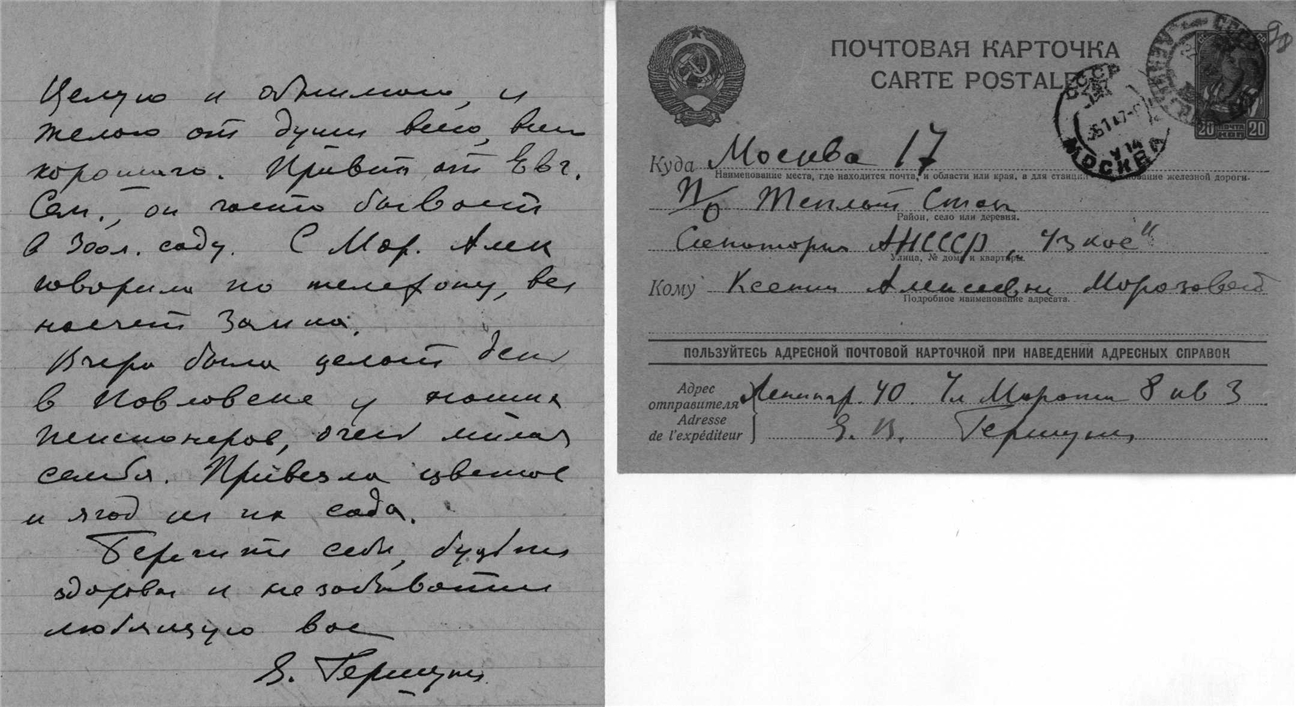 Целую и обнимаю, и
желаю от души всего, всего
хорошаго. Привет от Евг.
Сем., он часто бывает
в Зоол. саду. С Мар. Алек
говорила по телефону, все
насчет Займа.
Вчера была целый день
в Павловске у наших
пенсионеров, очень милая
семья. Привезла цветов
и ягод из их сада.
Берегите себя, будьте
здоровы и не забывайте
любящую вас
Я. Гершуни
ПОЧТОВАЯ КАРТОЧКА
CARTE POSTALE
СССР
МОСКВА
20 ПОЧТА 20
КОП
Куда Москва 17
Наименование места, где находится почта, и области или края, а для станций наименование железной дороги.
П/О Теплый Стан
Район, село или деревня.
Санатория АНСССР, Узкое"
Улица, № дома и квартиры.
Кому Ксении Алексеевны Морозовой
Подробное наименование адресата.
ПОЛЬЗУЙТЕСЬ АДРЕСНОЙ ПОЧТОВОЙ КАРТОЧКОЙ ПРИ НАВЕДЕНИИ АДРЕСНЫХ СПРАВОК
Адрес отправителя Ленингр. 40. Ул Марата 8 кв 3
Adresse de l'expéditeur Я. В. Гершуни